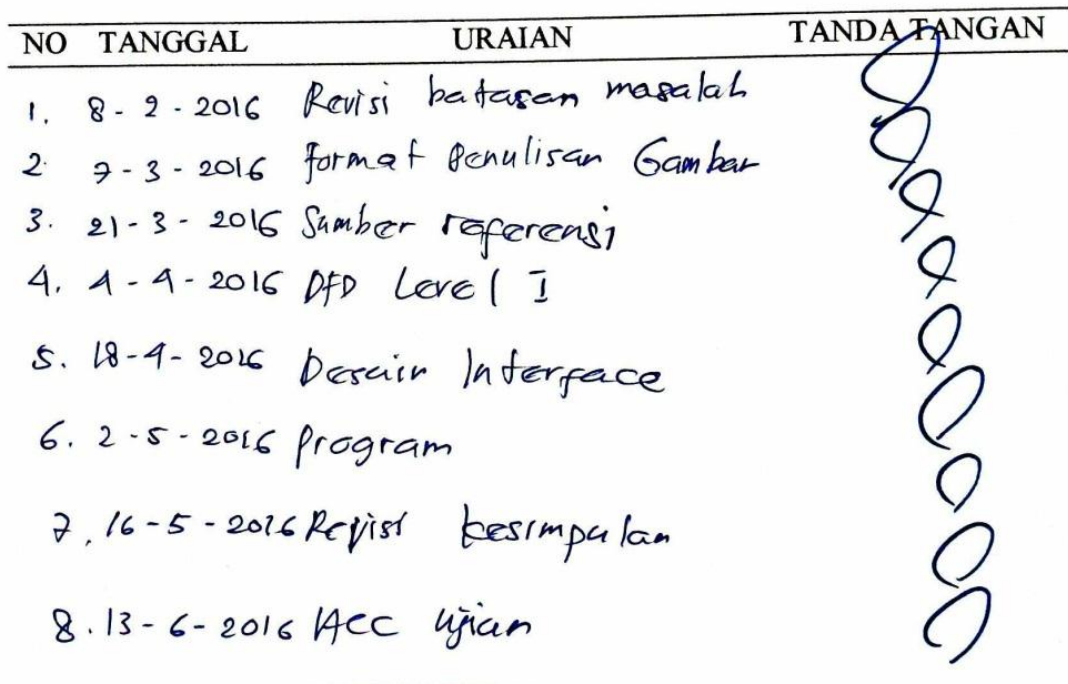 NO TANGGAL URAIAN TANDA TANGAN
1. 8-2-2016 Revisi batasan masalah
2. 7-3-2016 format Penulisan Gambar
3. 21-3-2016 Sumber referensi
4. 4-4-2016 DFD Level I
5. 18-4-2016 Desain Interface
6. 2-5-2016 Program
7. 16-5-2016 Revisi kesimpulan
8. 13-6-2016 ACC Ujian